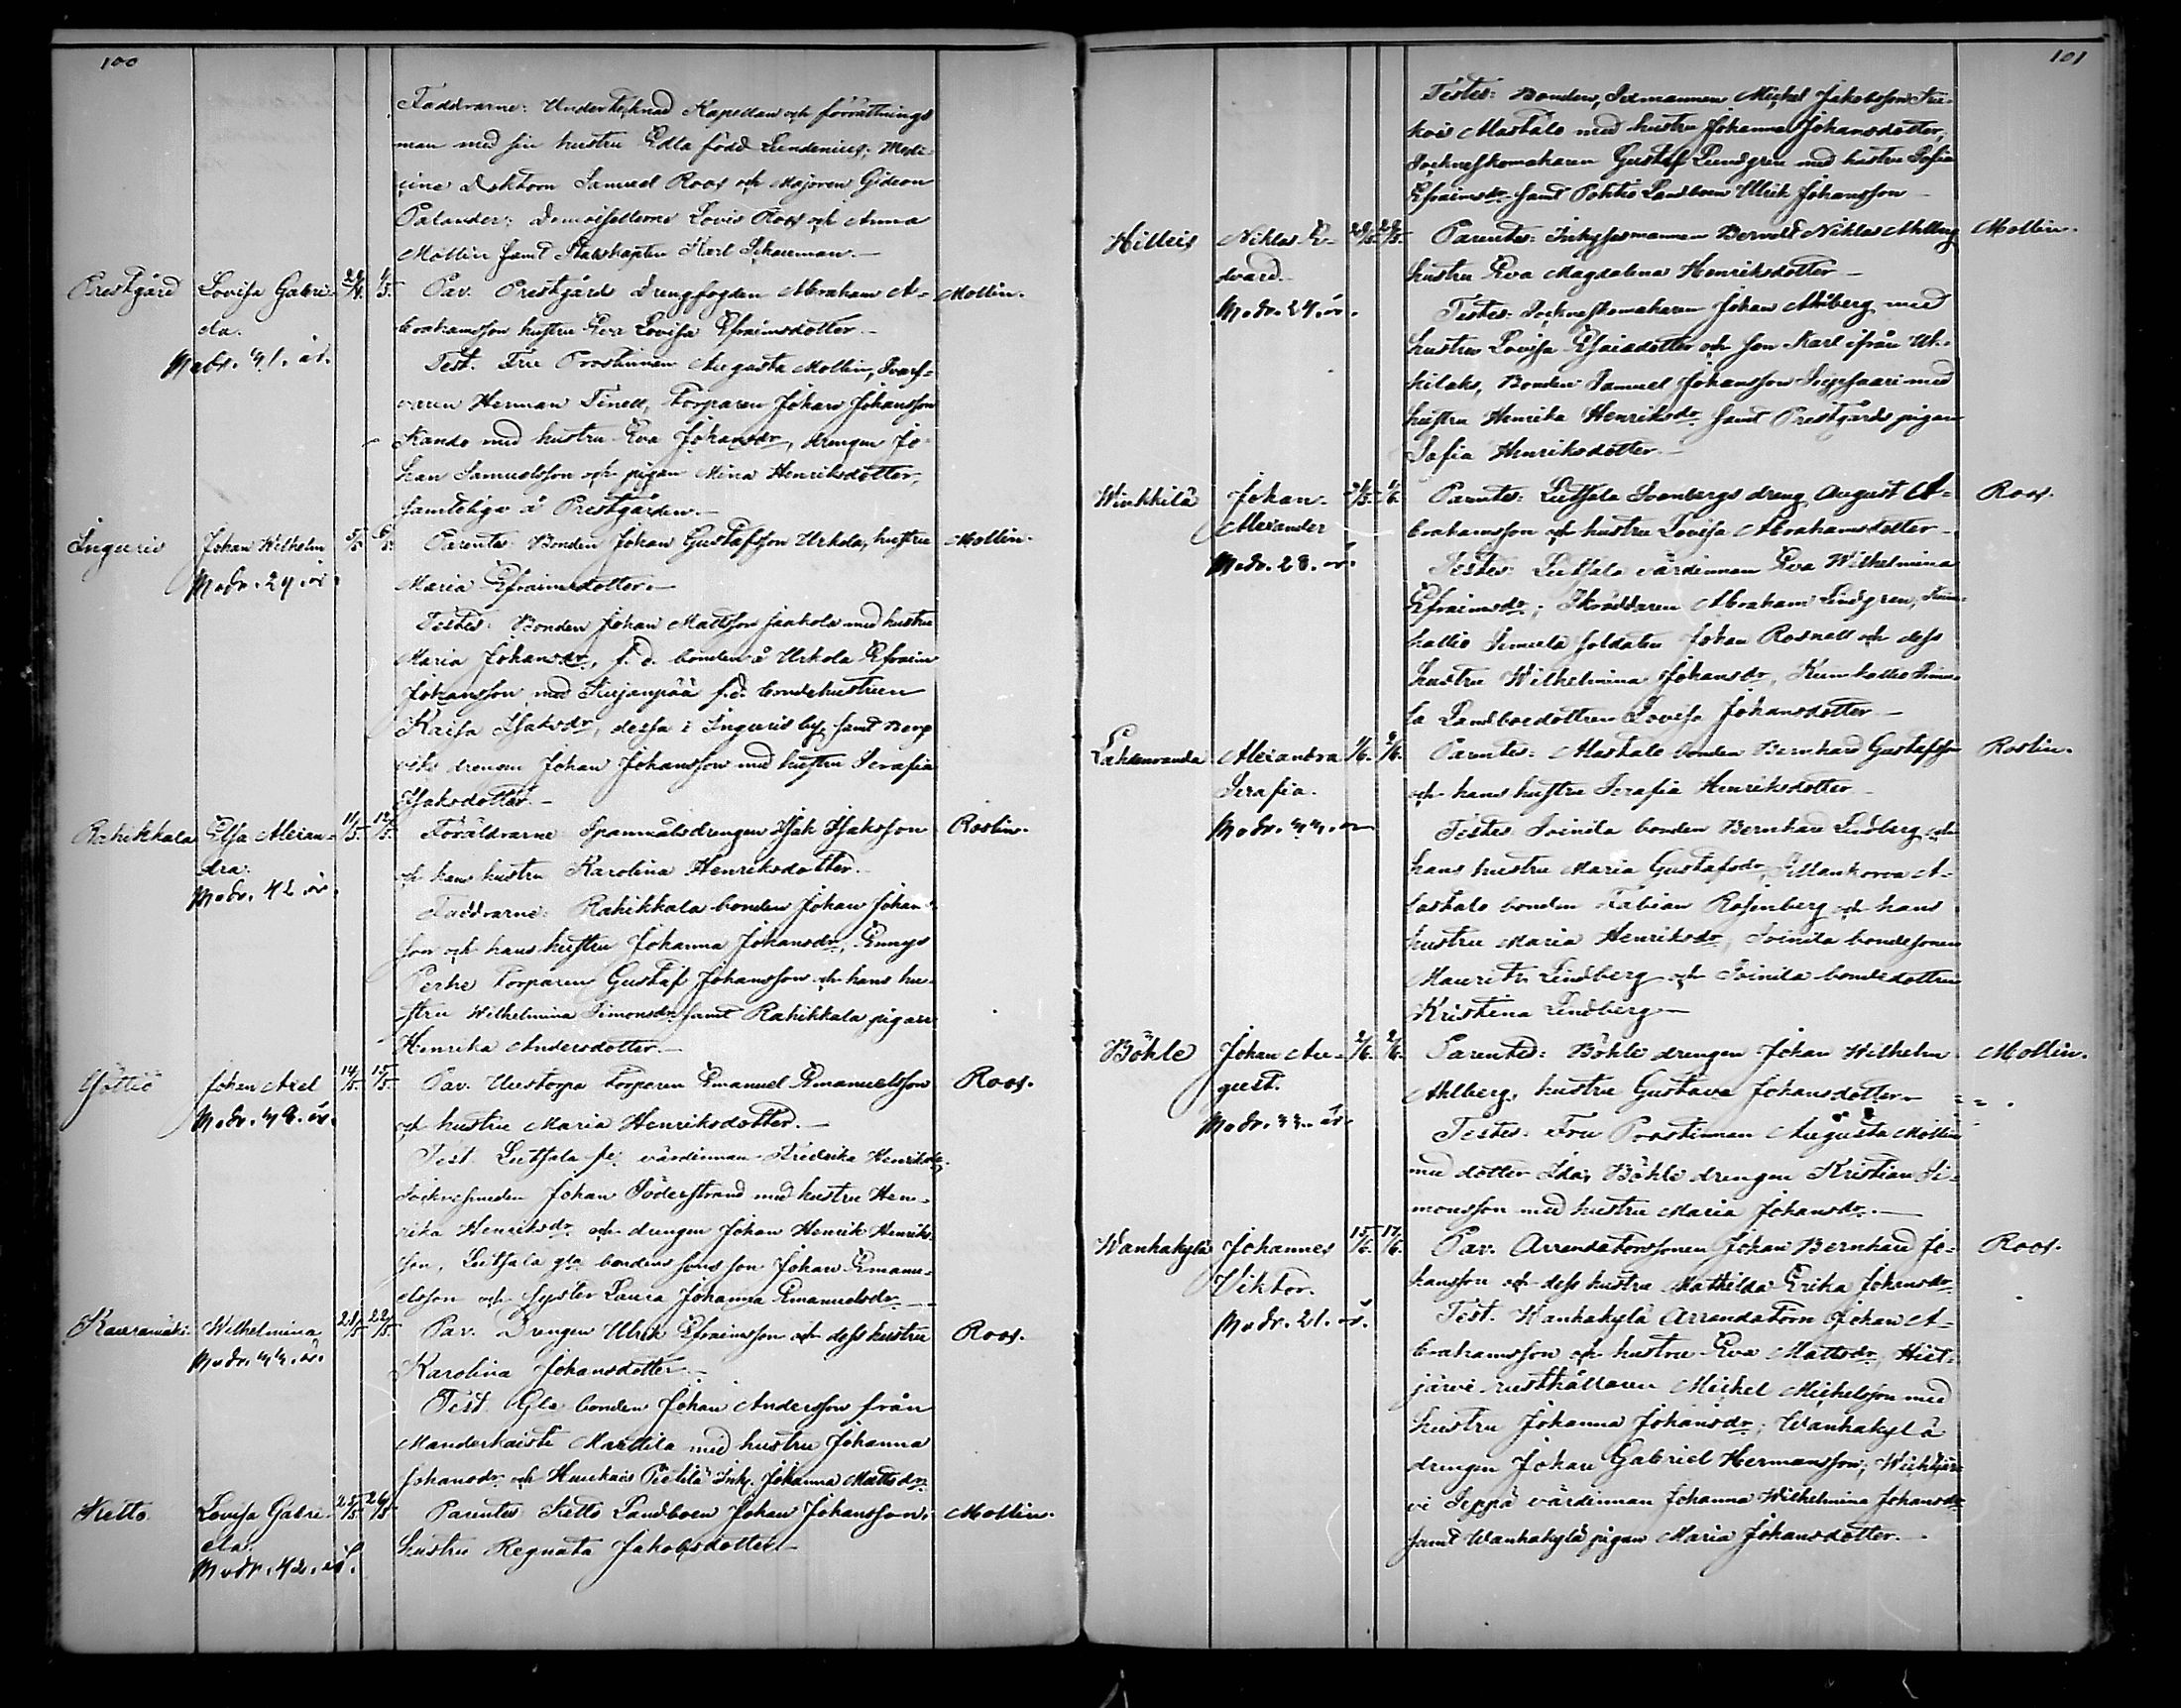 100
Faddrarne: Undertecknad Kapellan och förrättnings
man med sin hustru Edla född Lundenius, Medi-
cine doktorn Samuel Roos och Majoren Gideon
Palander; Demoisellerne Lovis Roos och Anna
Mollin samt Stabskapten Karl Schauman.—
Prestgård Lovisa Gabri- 28/4. 1/5. Par. Prestgårds Drengfogden Abraham A- Mollin.
ela. brahamsson hustru Eva Lovisa Efraimsdotter.—
Modr. 41. år. Test. Fru Prostinnan Augusta Mollin, Svarf-
varen Herman Tinell, Torparen Johan Johansson
Kando med hustru Eva Johansdr, drengen Jo-
han Samuelsson och pigan Mina Henriksdotter,
samtelige å Prestgården.—
Inguris Johan Wilhelm 5/5. 6/5. Parentes: Bonden Johan Gustafsson Urkola, hustru Mollin.
Modr. 24. år. Maria Efraimsdotter.—
Testes: Bonden Johan Mattsson Jaakola med hustru
Maria Johansdr, f.d. bonden å Urkola Efraim
Johansson med f.d. bondehustrun
Kaisa Isaksdr, dessa i Inguris by, samt
drengen Johan Johansson med hustru Serafia
Isaksdotter.—
Rahikkala Elsa Alexan- 11/5. 12/5. Föräldrarne Spannmålsdrengen Isak Isaksson Roslin.
dra. och hans hustru Karolina Henriksdotter.
Modr. 42 år. Faddrarne: Rahikkala bonden Johan Johans-
son och hans hustru Johanna Johansdr,
Perhe Torparen Gustaf Johansson och hans hu-
stru Wilhelmina Simonsdr samt Rahikkala pigan
Henrika Andersdotter.—
Johan Axel 14/5. 15/5. Par. Uustorpa Torparen Emanuel Emanuelsson Roos.
Modr. 48. år. och hustru Maria Henriksdotter.—
Test. Luthala värdinnan Fredrika Henriksdr,
Socknesmeden Johan Söderstrand med hustru Hen-
rika Henriksdr och drengen Johan Henrik Henriks-
son, Luthala gla bondens sonson Johan Emanu-
elsson och syster Laura Johanna Emanuelsdr.—
Kauramäki Wilhelmina 21/5. 22/5. Par. Drengen Ulrik Efraimsson och dess hustru Roos.
Modr. 44. år. Karolina Johansdotter.—
Test. Gla bonden Johan Andersson från
Manderkaiste Marttila med hustru Johanna
Johansdr och Huukais Pietilä Inh. Johanna Mattsdr.
Ketto Lovisa Gabri- 25/5 26/5 Parentes Ketto Landboen Johan Johansson, Mollin.
ela. hustru Regnata Jakobsdotter.—
Modr. 42. år.
101
Testes: Bonden, Sexmannen Michel Jakobsson
Mastalo med hustru Johanna Johansdotter,
Sockneskomakaren Gustaf Lundgren med hustru Sofia
Efraimsdr samt Landboen Ulrik Johansson—
Hilleis Niklas E- 28/5. 29/5. Parentes: Inhysesmannen Berndt Niklas Mollin.
dvard. hustru Eva Magdalena Henriksdotter—
Modr. 24. år. Testes: Sockneskomakaren Johan Åberg med
hustru Lovisa Esaiadotter och son Karl ifrån Uh-
kilaks, Bonden Samuel Johansson med
hustru Henrika Henriksdr samt Prestgårds pigan
Sofia Henriksdotter.—
Winkkilä Johan 31/5. 1/6. Parentes: Luthala Svenbergs dreng August A- Roos.
Alexander brahamsson och hustru Lovisa Abrahamsdotter—
Modr. 28. år. Testes: Luthala värdinnan Eva Wilhelmina
Efraimsdr; Skräddaren Abraham Lindgren,
soldaten Johan Rosnell och dess
hustru Wilhelmina Johansdr,
la Landboedottren Lovisa Johansdotter—
Lahdenranda Alexandra 1/6. 2/6. Parentes: Alastalo bonden Bernhard Gustafsson Roslin.
Serafia. och hans hustru Serafia Henriksdotter—
Modr. 44. år Testes Soinila bonden Bernhard Lindberg och
hans hustru Maria Gustafsdr, Illankorva A-
lastalo bonden Fabian Rosenberg och hans
hustru Maria Henriksdr, Soinila bondesonen
Maurits Lindberg och Soinila bondedottren
Kristina Lindberg—
Böhle Johan Au- 2/6. 2/6. Parentes: Böhle drengen Johan Wilhelm Mollin.
gust. Ahlberg, hustru Gustava Johansdotter—
Modr. 33. år. Testes: Fru Prostinnan Augusta Mollin
med dotter Ida, Böhle drengen Kristian Si-
monsson med hustru Maria Johansdr.—
Wanhakylä Johannes 15/6. 17/6. Par. Arrendatorssonen Johan Bernhard Jo- Roos.
Viktor. hansson och dess hustru Mathilda Erika Johansdr.
Modr. 21. år. Test. Wanhakylä Arrendatorn Johan A-
brahamsson och hustru Eva Mattsdr, Hiet-
järvi rusthållaren Michel Michelsson med
hustru Johanna Johansdr; Wanhakylä
drengen Johan Gabriel Hermansson;
vi Seppä värdinnan Johanna Wilhelmina Johansdr
samt Wanhakylä pigan Maria Johansdotter.—